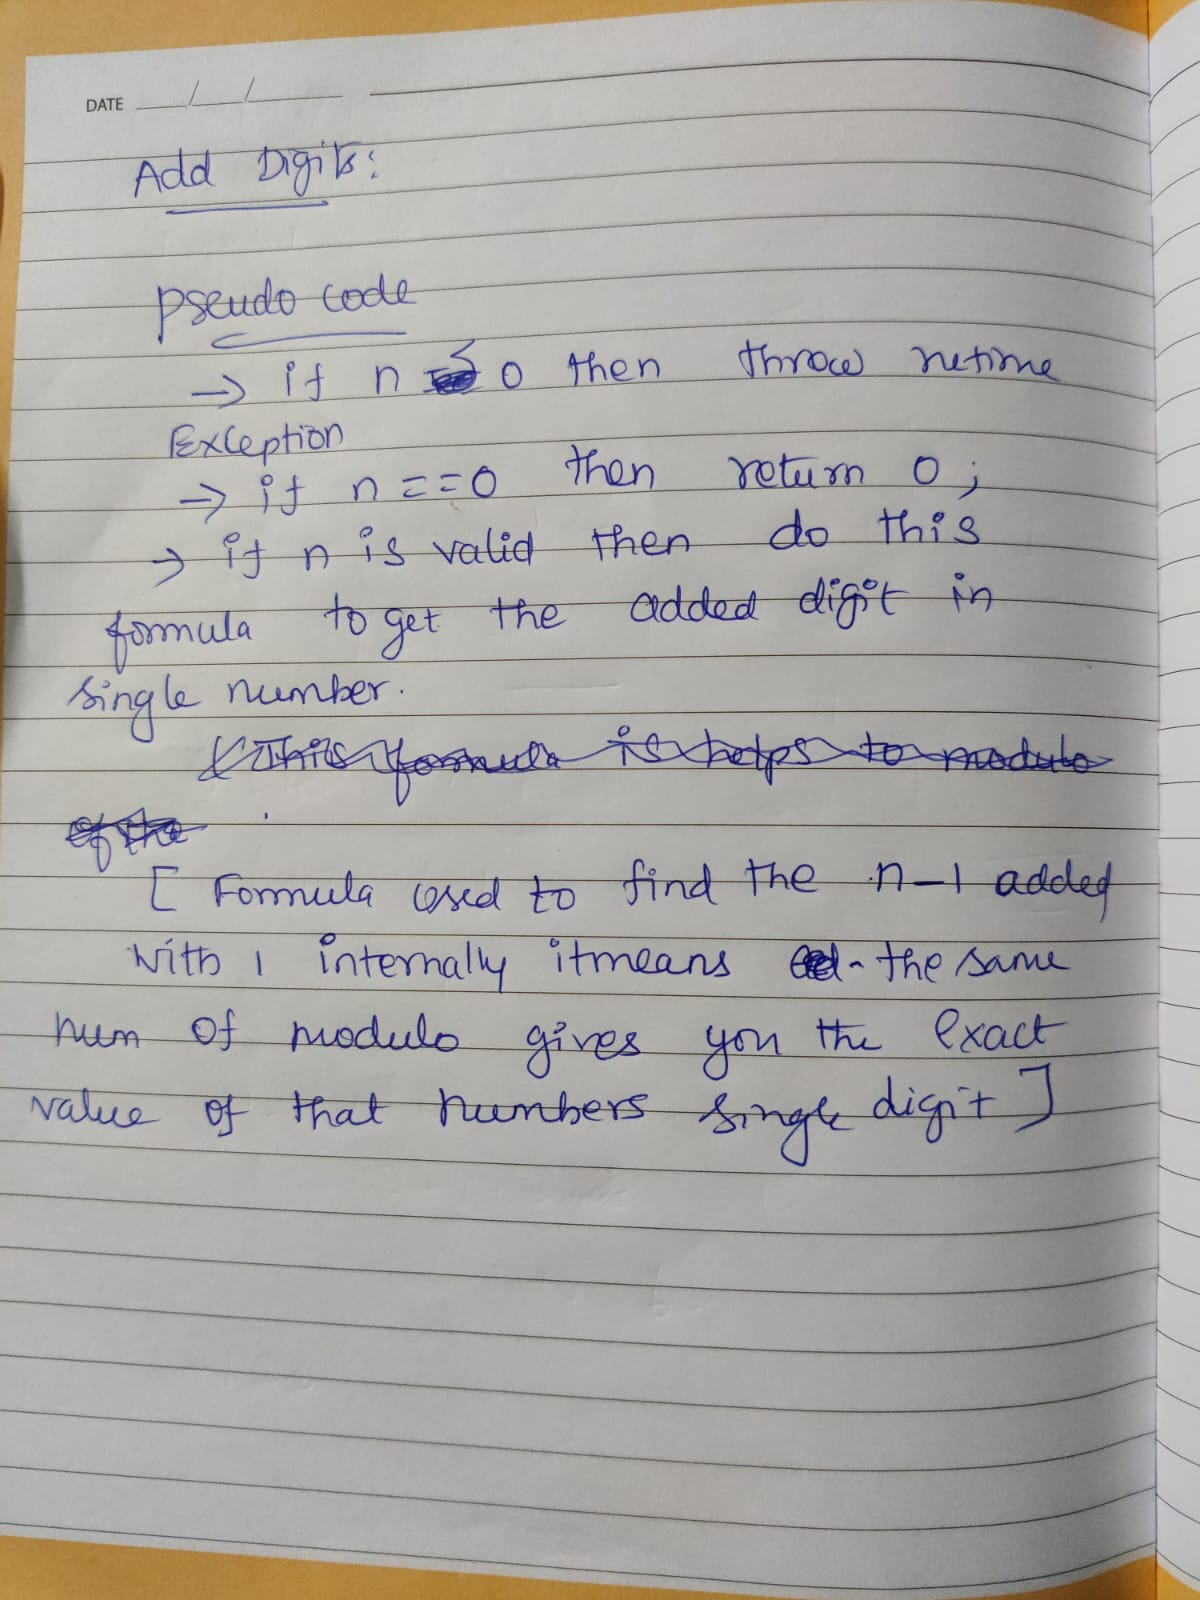 DATE
Add Digits:
pseudo code
→ if n < 0 then throw
Exception
→ if n == 0 then return 0;
→ if n is valid then do this
formula to get the added digit in
single number.
This formula is helps to modulo
of the
[ Formula used to find the n-1 added
with 1 internally itmeans the same
num of modulo gives you the exact
value of that numbers single digit ]